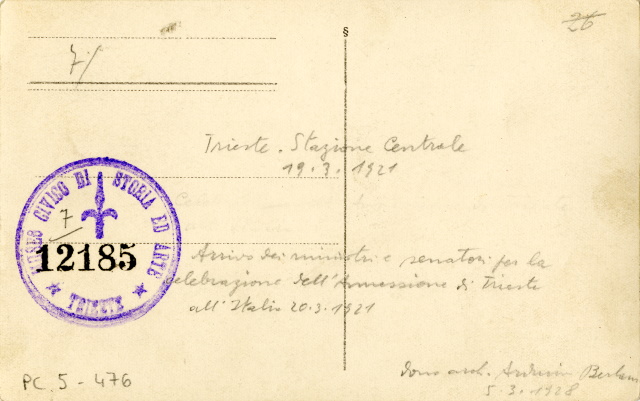 7/
26
§
Trieste. Stazione Centrale
19.3.1921
MUSEO CIVICO DI STORIA ED ARTE
7
12185
TRIESTE
Arrivo dei ministri e senatori per la
celebrazione dell'Annessione di Trieste
all'Italia 20.3.1921
PC. 5 - 476
dono arch. Arduino Berlam
5.3.1928